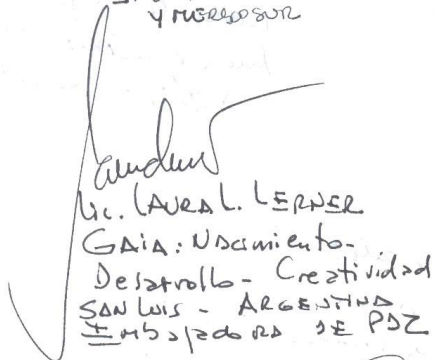 Y MERCOSUR
Lic. LAURA L. LERNER
GAIA: Nacimiento-
Desarrollo - Creatividad
SAN LUIS - ARGENTINA
EMbajadoRA DE PAZ